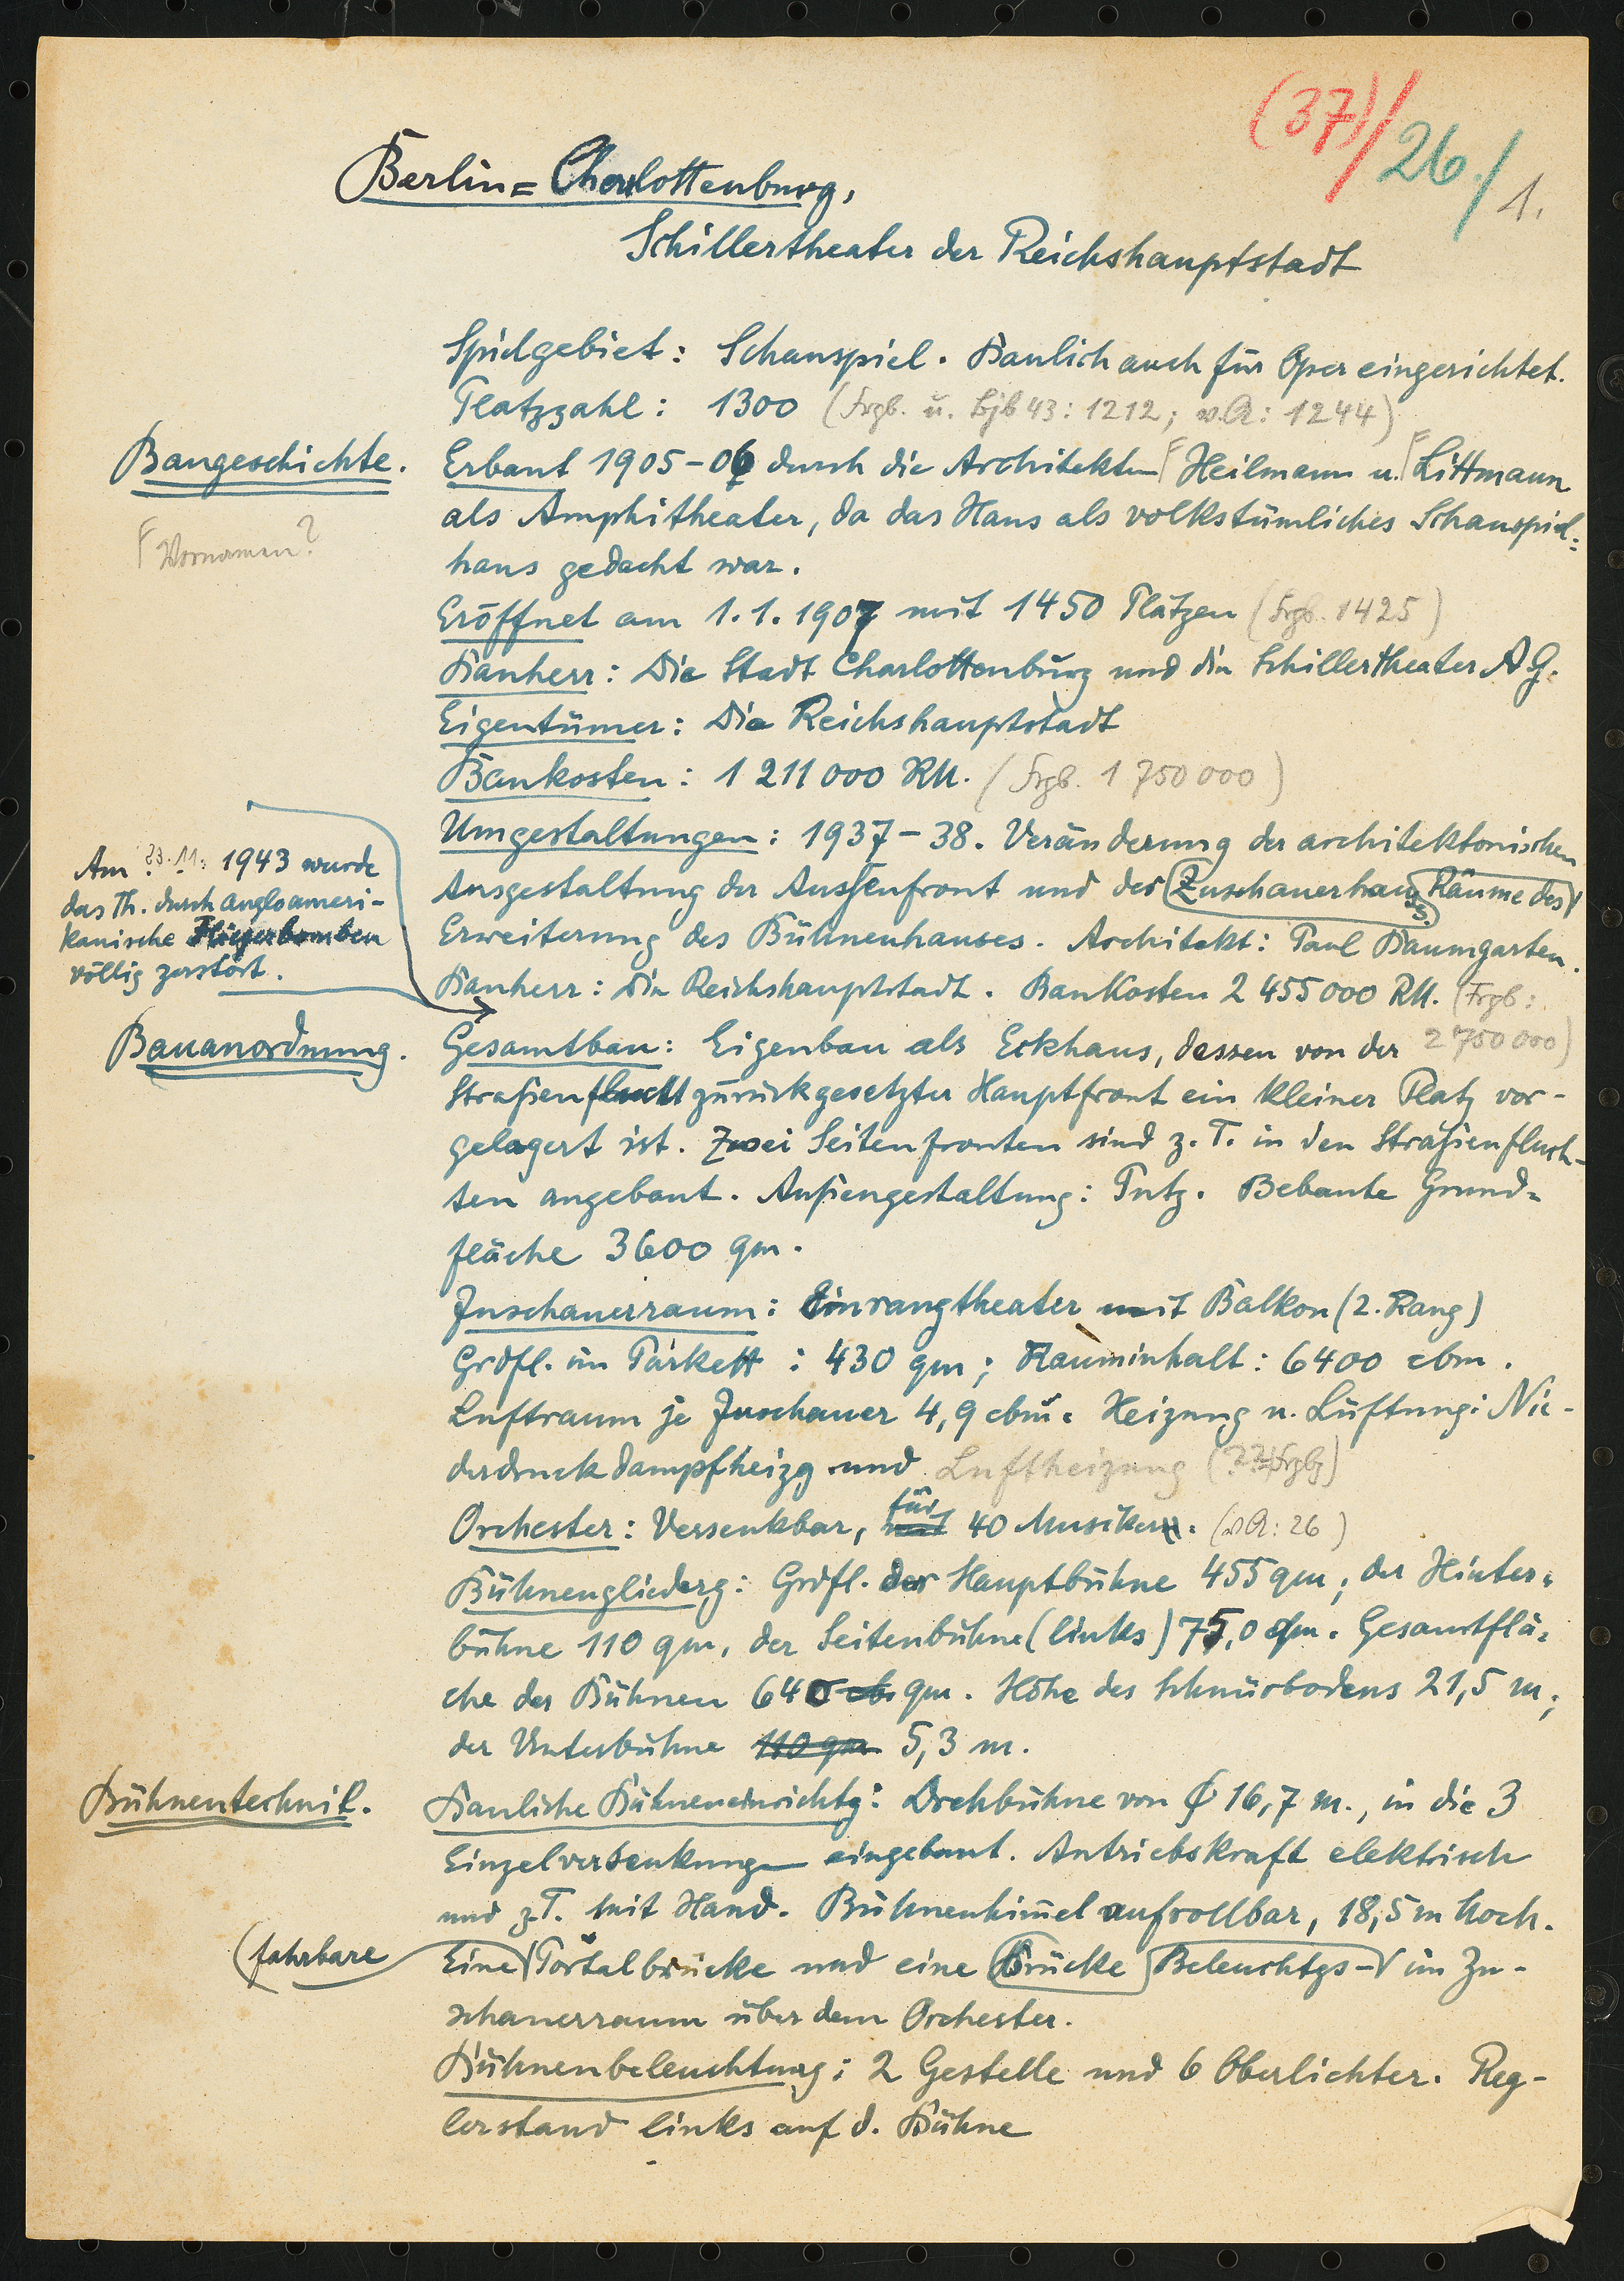 (37)/26./1.
Berlin=Charlottenburg,
Schillertheater der Reichshauptstadt
Spielgebiet: Schauspiel. Baulich auch für Oper eingerichtet.
Platzzahl: 1300 (Frgb. u. Bjb 43: 1212; v.A: 1244)
Baugeschichte.
Erbaut 1905-06 durch die Architekten Heilmann u. Littmann
als Amphitheater, da das Haus als volkstümliches Schauspiel=
Vornamen?
haus gedacht war.
Eröffnet am 1.1.1907 mit 1450 Plätzen (Frgb. 1425)
Bauherr: Die Stadt Charlottenburg und die Schillertheater A.G.
Eigentümer: Die Reichshauptstadt
Baukosten: 1 211 000 RM. (Frgb. 1 750 000)
Umgestaltungen: 1937-38. Veränderung der architektonischen
Ausgestaltung der Aussenfront und des Zuschauerhauses Räume des
Erweiterung des Bühnenhauses. Architekt: Paul Baumgarten.
Bauherr: Die Reichshauptstadt. Baukosten 2 455 000 RM. (Frgb:
2 750 000)
Am 23.11. 1943 wurde
das Th. durch angloameri-
kanische Fliegerbomben
völlig zerstört.
Bauanordnung.
Gesamtbau: Eigenbau als Eckhaus, dessen von der
Straßenflucht zurückgesetzter Hauptfront ein kleiner Platz vor-
gelagert ist. Zwei Seitenfronten sind z. T. in den Straßenfluch-
ten angebaut. Außengestaltung: Putz. Bebaute Grund=
fläche 3600 qm.
Zuschauerraum: Einrangtheater mit Balkon (2. Rang)
Grdfl. im Parkett: 430 qm; Rauminhalt: 6400 cbm.
Luftraum je Zuschauer 4,9 cbm. Heizung u. Lüftung: Nie-
derdruckdampfheizg und Luftheizung (??Frgb)
Orchester: Versenkbar, mit für 40 Musiker. (v.A: 26)
Bühnengliederg: Grdfl. der Hauptbühne 455 qm, der Hinter=
bühne 110 qm, der Seitenbühne (links) 75,0 qm. Gesamtflä=
che der Bühnen 640 cb qm. Höhe des Schnürbodens 21,5 m;
der Unterbühne 110 qm 5,3 m.
Bühnentechnik.
Bauliche Bühneneinrichtg: Drehbühne von ϕ 16,7 m., in die 3
Einzelversenkungen eingebaut. Antriebskraft elektrisch
und z.T. mit Hand. Bühnenhimmel aufrollbar, 18,5 m hoch.
(fahrbare
Eine Portalbrücke und eine Brücke Beleuchtgs- im Zu-
schauerraum über dem Orchester.
Bühnenbeleuchtung: 2 Gestelle und 6 Oberlichter. Reg-
lerstand links auf d. Bühne